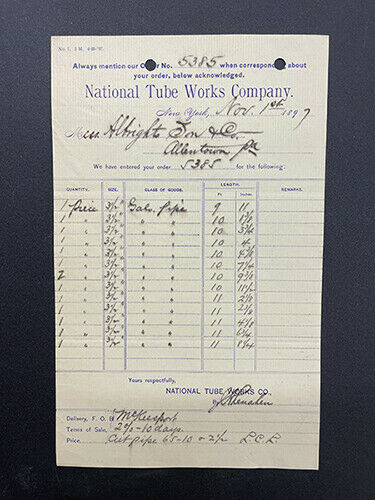 No. 1. 3 M. 4-
Always mention our Order No. 5385 when corresponding about
your order, below acknowledged.
National Tube Works Company.
New York, Nov. 1st 1897
Mess Albright Son & Co.
Allentown Pa
We have entered your order 5385 for the following:
QUANTITY. SIZE. CLASS OF GOODS. LENGTH. REMARKS.
Ft. In.
1 piece 3½" Galv. pipe 9 11
1 " 3½" " " 10
1 " 3½" " " 10
1 " 3½" " " 10 4
1 " 3½" " " 10
1 " 3½" " " 10
2 " 3½" " " 10
1 " 3½" " " 10
1 " 3½" " " 11
1 " 3½" " " 11
1 " 3½" " " 11
1 " 3½" " " 11
1 " 3½" " " 11
Yours respectfully,
NATIONAL TUBE WORKS CO.,
By
Delivery, F. O. B. McKeesport
Terms of Sale, 2%-10 days.
Price, Cut pipe 65-10 & 2½ L.C.L.